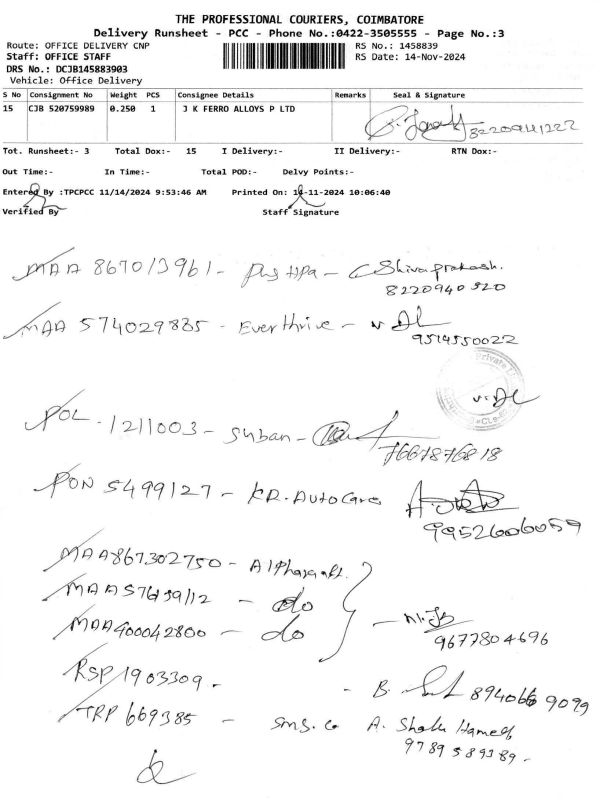 THE PROFESSIONAL COURIERS, COIMBATORE
Delivery Runsheet - PCC - Phone No.:0422-3505555 - Page No.:3
Route: OFFICE DELIVERY CNP
RS No.: 1458839
Staff: OFFICE STAFF
RS Date: 14-Nov-2024
DRS No.: DCJB145883903
Vehicle: Office Delivery
S No Consignment No Weight PCS Consignee Details Remarks Seal & Signature
15 CJB 520759989 0.250 1 J K FERRO ALLOYS P LTD
Tot. Runsheet:- 3 Total Dox:- 15 I Delivery:- II Delivery:- RTN Dox:-
Out Time:- In Time:- Total POD:- Delvy Points:-
Entered By :TPCPCC 11/14/2024 9:53:46 AM Printed On: 14-11-2024 10:06:40
Verified By Staff Signature
MAA 867013961 - - C Shivaprakash.
8220940520
MAA 574029885 - Everthrive -
9514550022
Private
POL - 1211003 - Suban -
7667876818
PON 5499127 - KR. AutoCare
9952606059
MAA867302750 -
MAA - do
MAA400042800 - do
9677804696
RSP 1903309 -
- B. 9099
TRP 669385 - sms. co A. Hameed
9789589389.